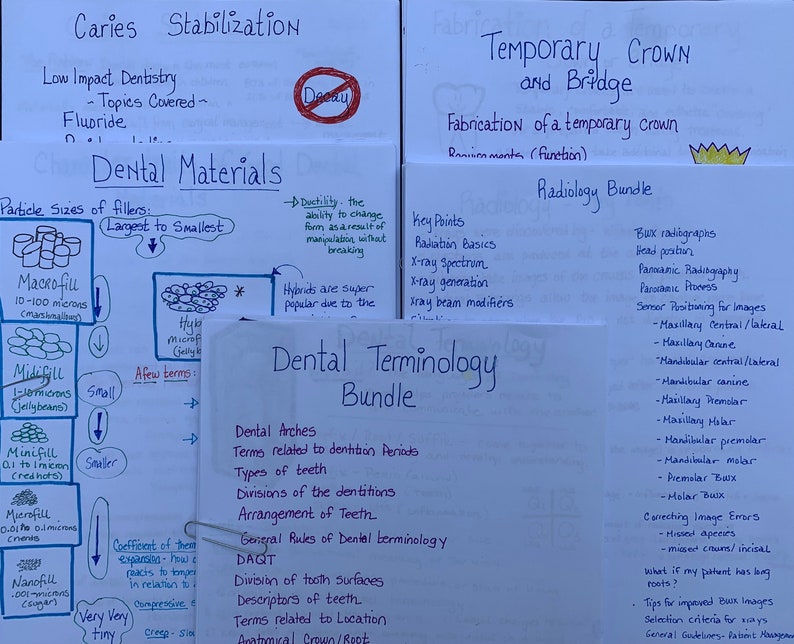 Caries Stabilization
Low Impact Dentistry
~ Topics Covered ~
Fluoride
Decay
Temporary Crown
and Bridge
Fabrication of a temporary crown
Requirements (function)
Dental Materials
Particle Sizes of fillers:
Largest to Smallest
→ Ductility - the
ability to change
form as a result of
manipulation without
breaking
Macrofill
10-100 microns
(marshmallows)
*
Hybrids are super
popular due to the
Hyb
microf
(jellyb
Midifill
1-10 microns
(jellybeans)
Small
A few terms:
Minifill
0.1 to 1 micron
(red hots)
Smaller
Microfill
0.01 to 0.1 microns
(nerds
Nanofill
.001-microns
(sugar)
Very Very
tiny
Coefficient of therm
expansion - how
reacts to tempe
in relation to
Compressive s
Creep - slo
Radiology Bundle
Key Points
Radiation Basics
X-ray Spectrum
X-ray generation
Xray beam modifiers
BWX radiographs
Head position
Panoramic Radiography
Panoramic Process
Sensor Positioning for Images
- Maxillary Central/lateral
- Maxillary Canine
- Mandibular central/Lateral
- Mandibular canine
- Maxillary Premolar
- Maxillary Molar
- Mandibular premolar
- Mandibular molar
- Premolar BWX
- Molar BWX
Correcting Image Errors
- Missed apecies
- missed crowns/incisal
What if my patient has long
roots?
. Tips for improved BWX Images
Selection criteria for xrays
General Guidelines - Patient Manageme
Dental Terminology
Bundle
Dental Arches
Terms related to dentition Periods
Types of teeth
Divisions of the dentitions
Arrangement of Teeth
General Rules of Dental terminology
DAQT
Division of tooth surfaces
Descriptors of teeth
Terms related to Location
Anatomical Crown/Root